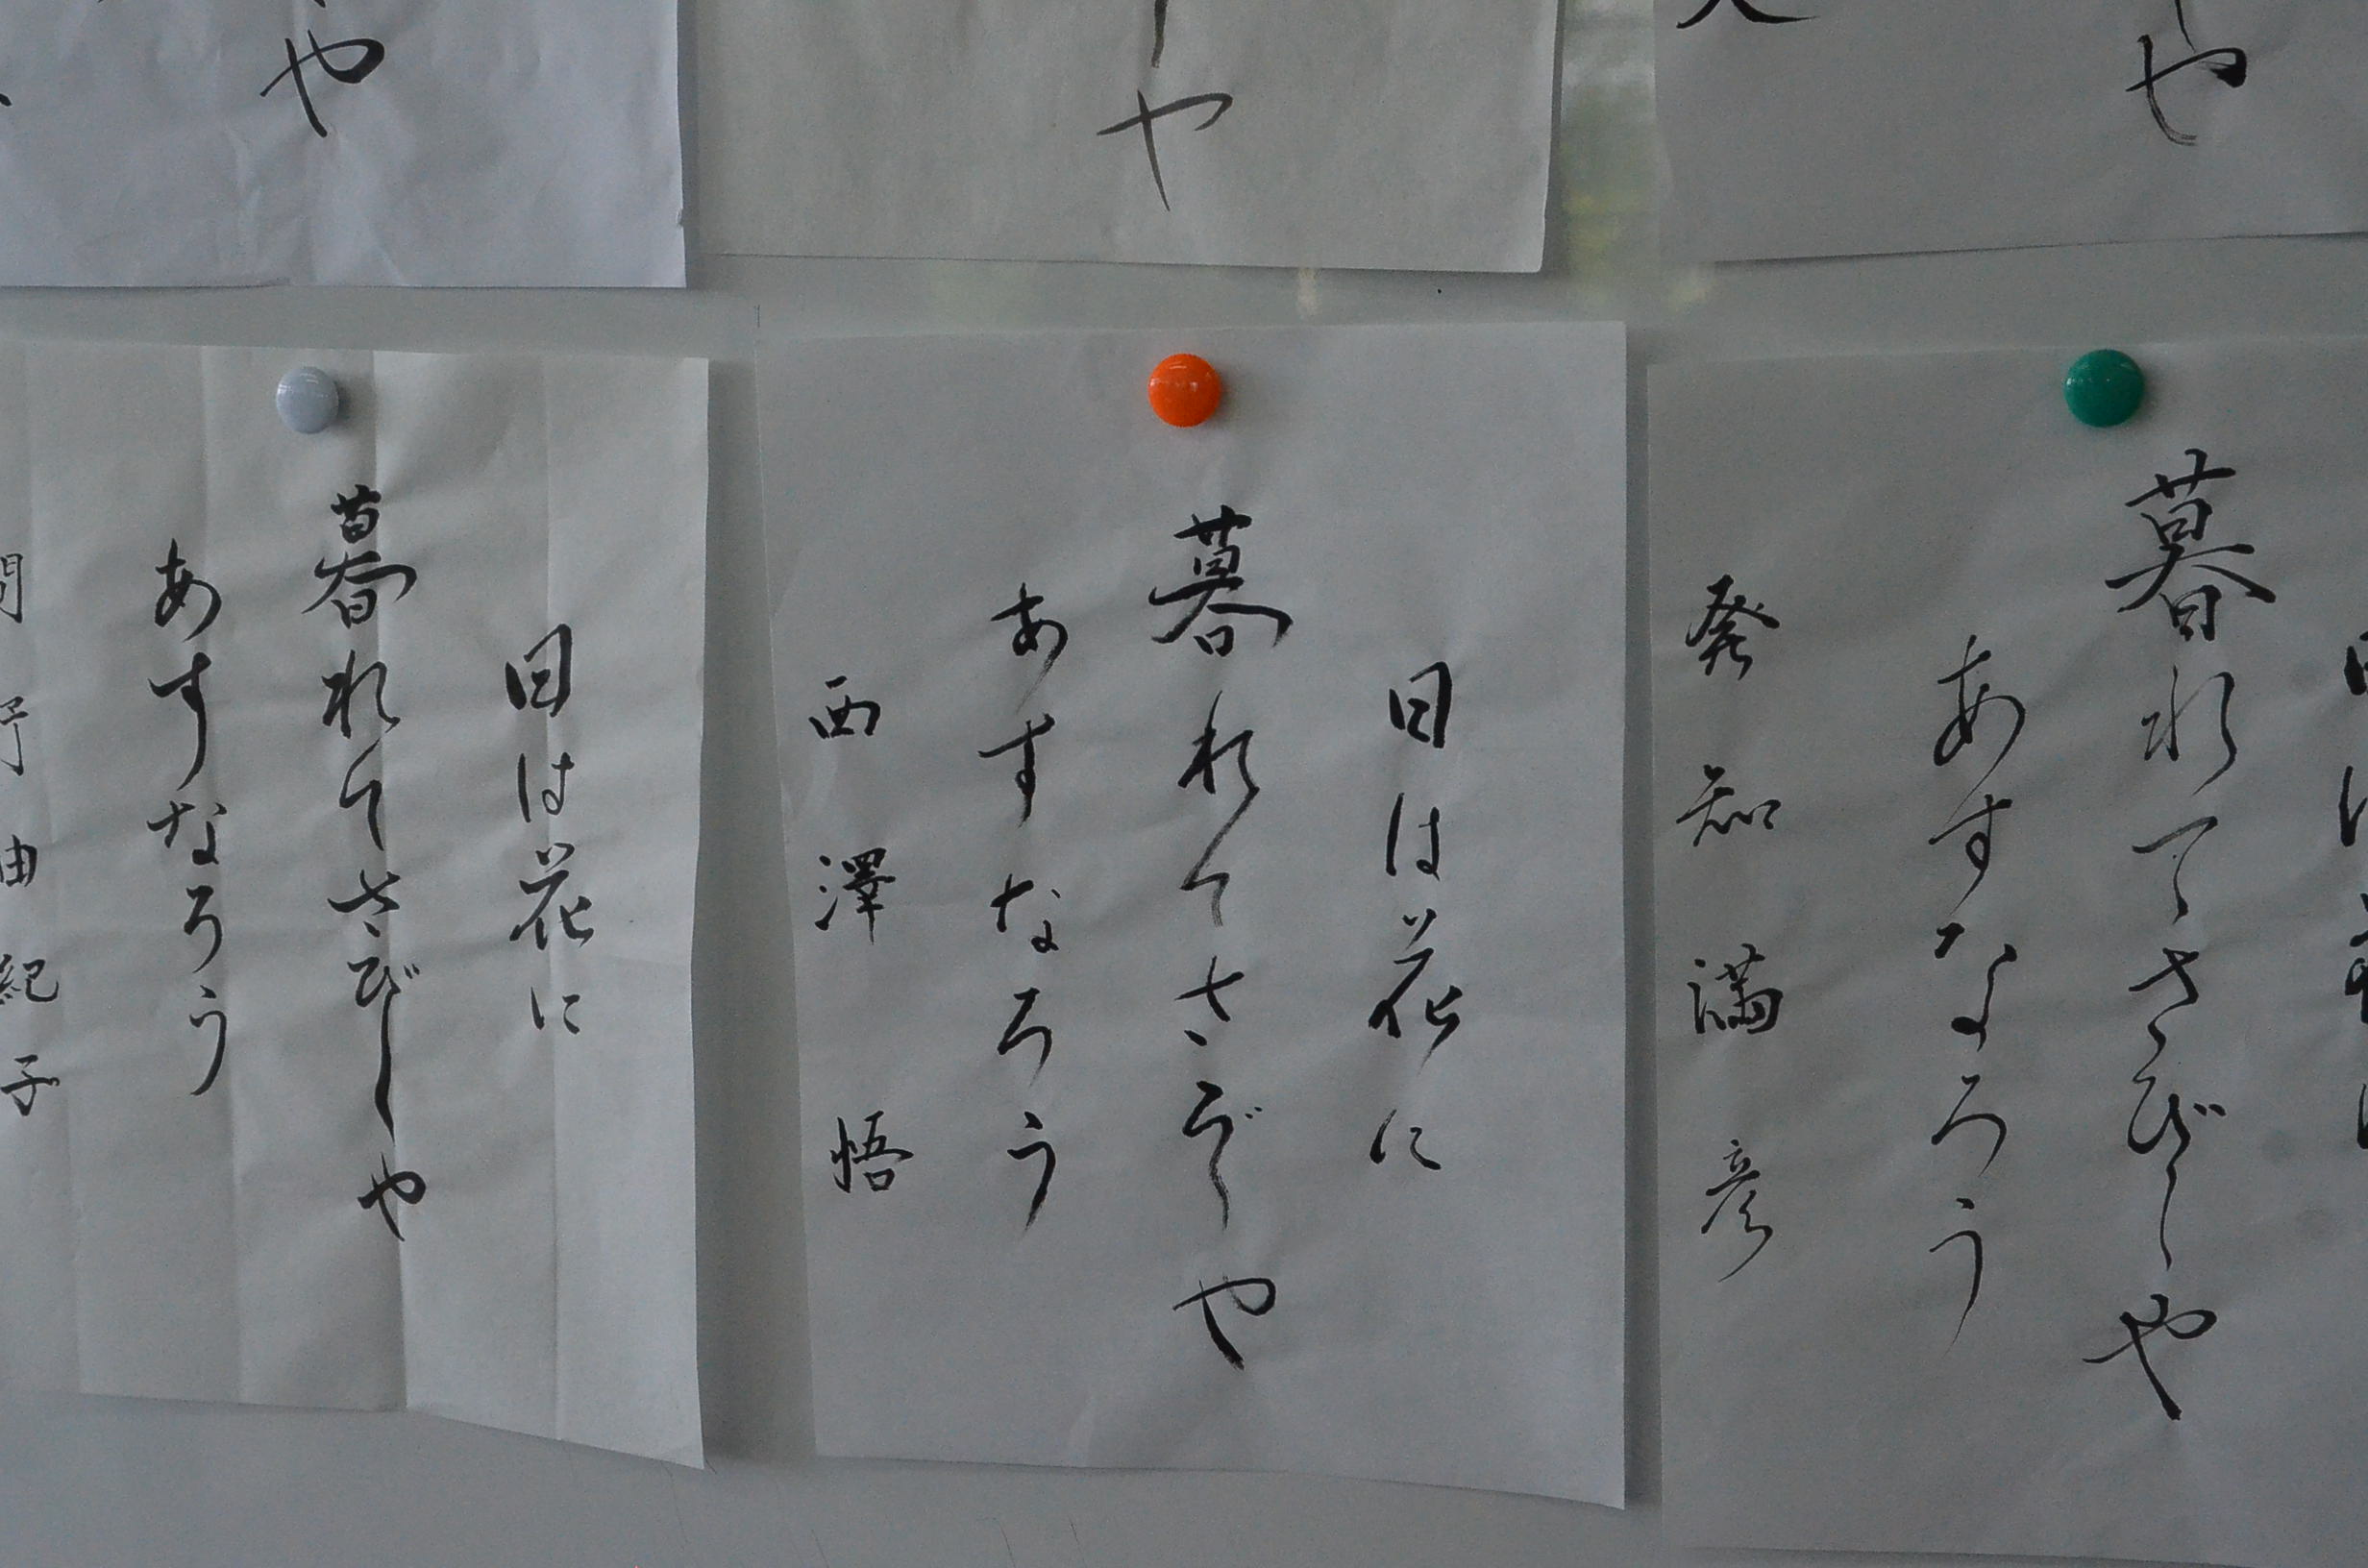 や
や
や
日は花に
暮れてさびしや
あすなろう
西澤 悟
暮れてさびしや
あすなろう
発知満彦
日は花に
暮れてさびしや
あすなろう
由紀子